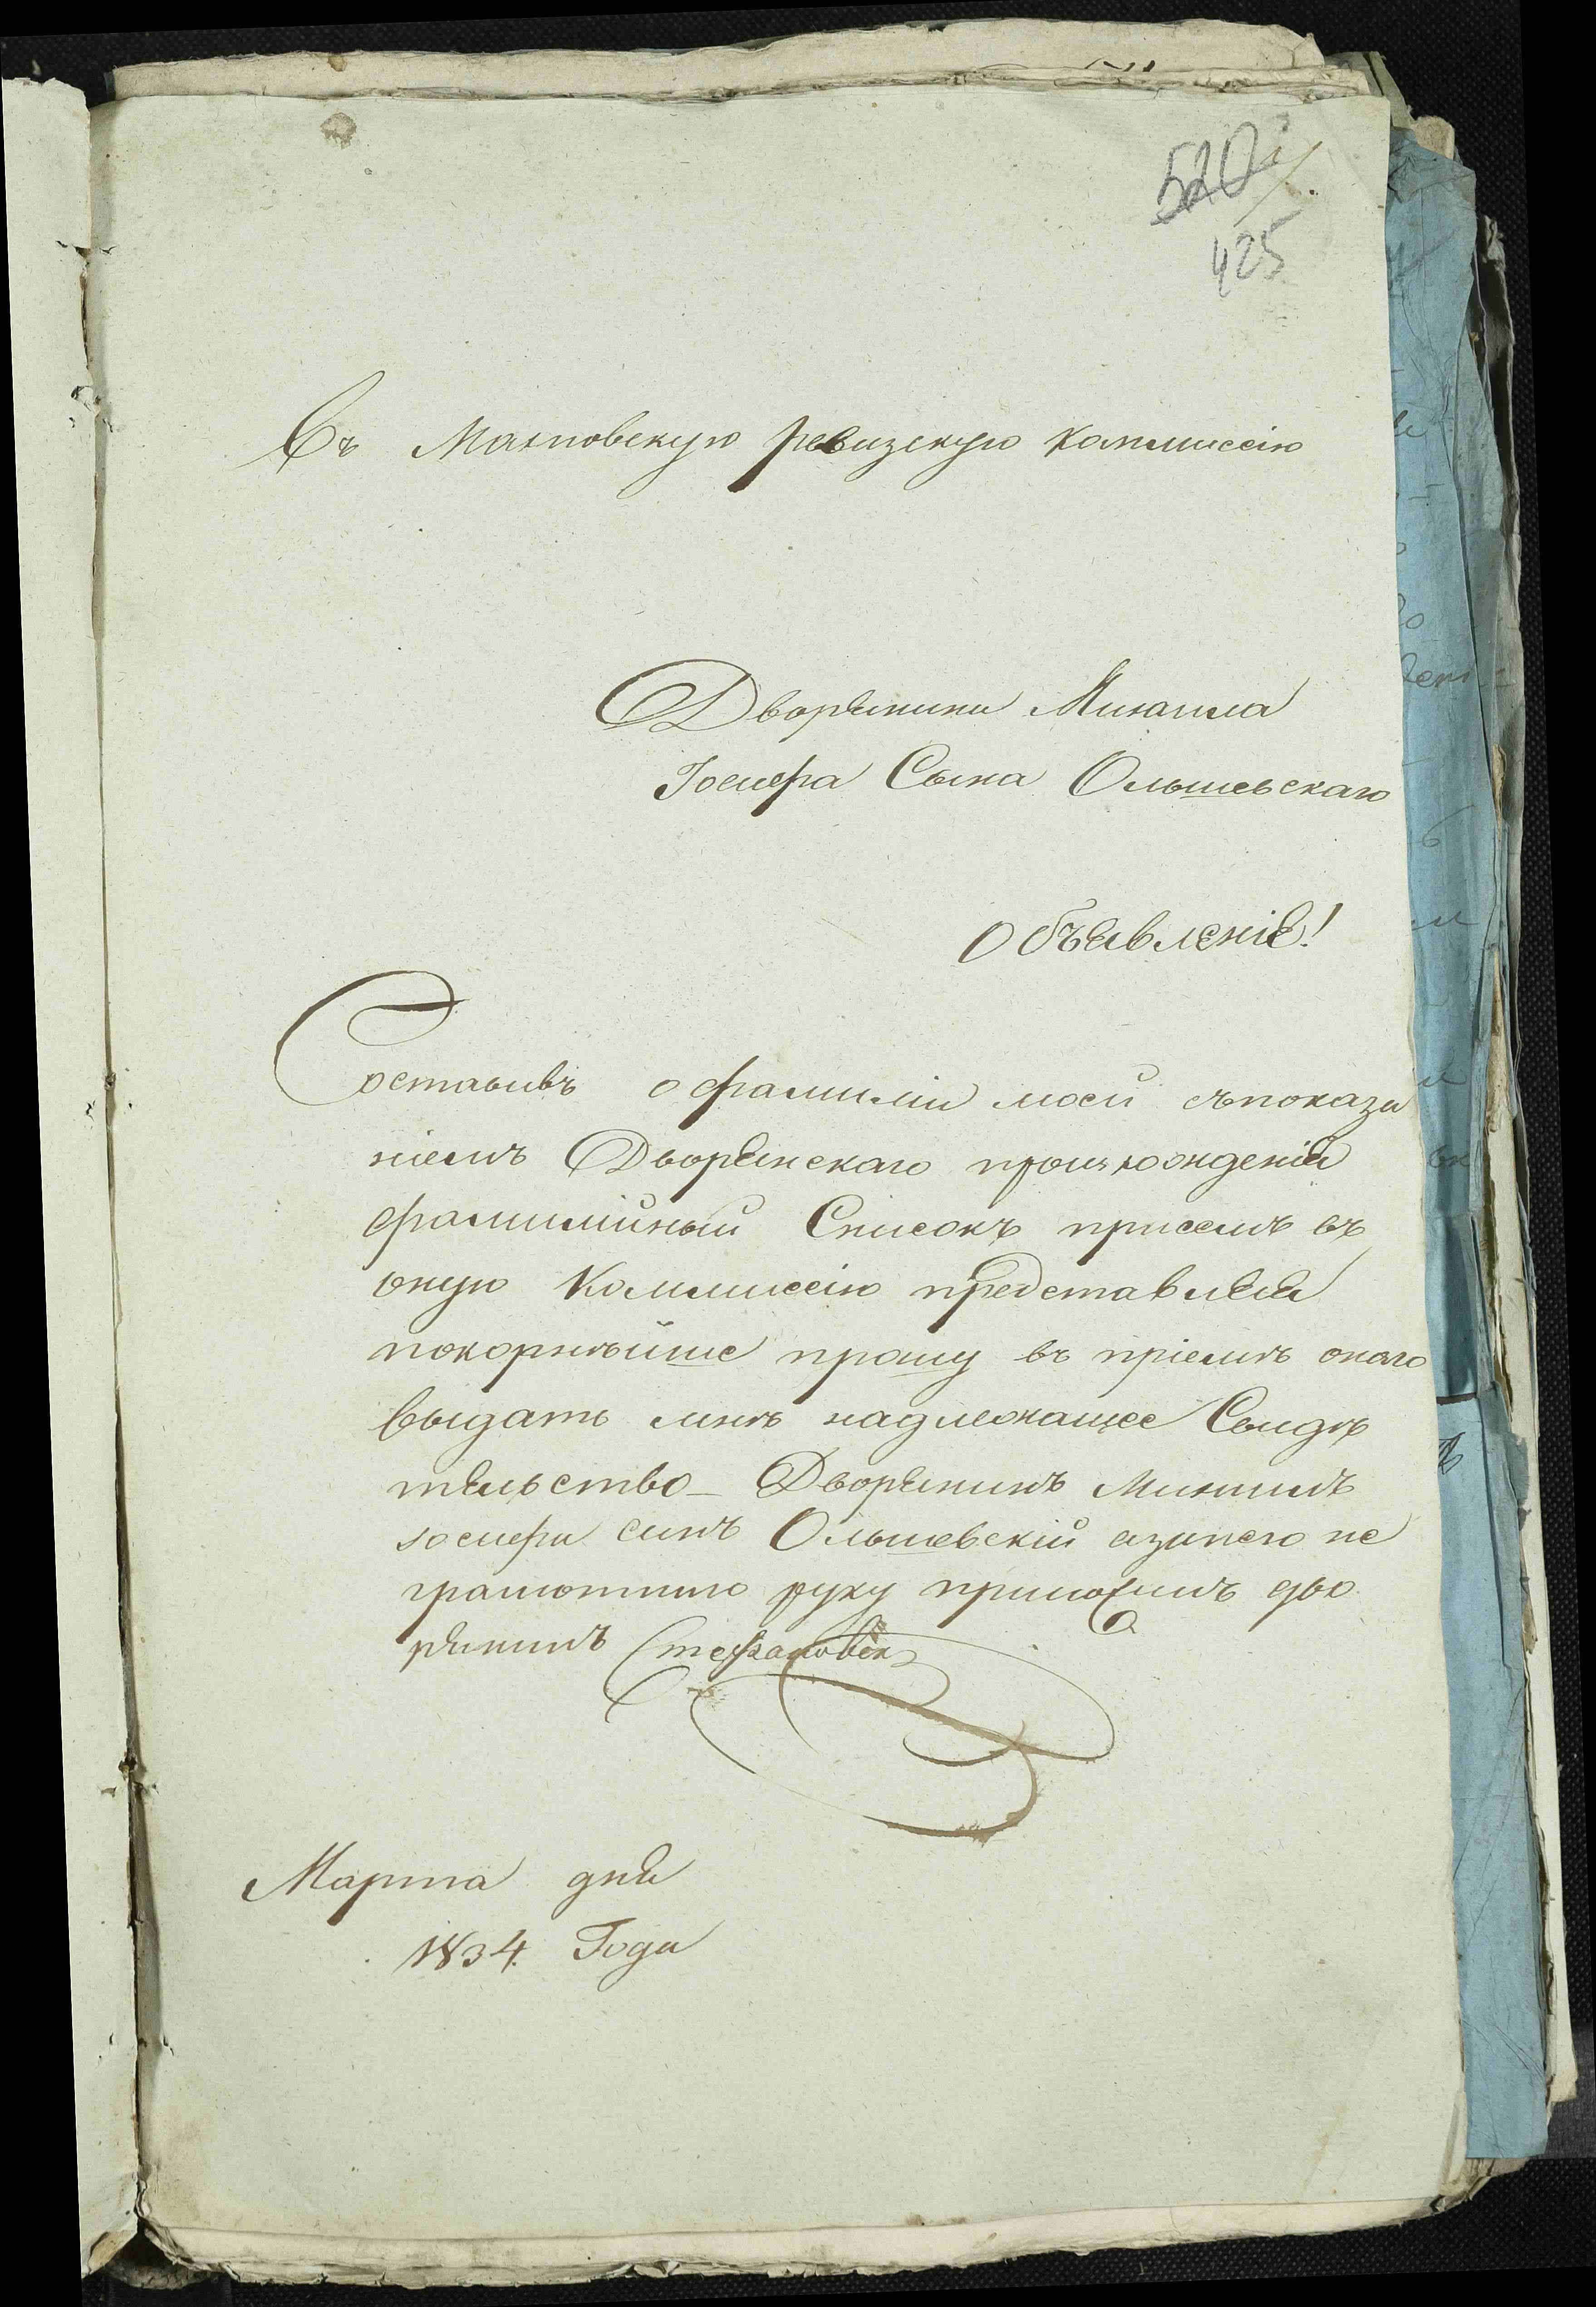 520
425
Въ Махновскую ревизскую коммиссію
Дворянина Михаила
Іосифа Сына Ольшевскаго
Объявленіе!
Составивъ о фамиліи моей съпоказа
ніемъ Дворянскаго происхожденія
фамилійный Списокъ присемъ въ
оную Коммиссію представляя
покорнѣйше прошу въ пріемѣ онаго
выдать мнѣ надлежащее Свидѣ
тельство_ Дворянинъ Михаилъ
іосифа синъ Ольшевскій азанего не
грамотного руку приложилъ дво
рянинъ Стефановск
Марта дня
1834. Года